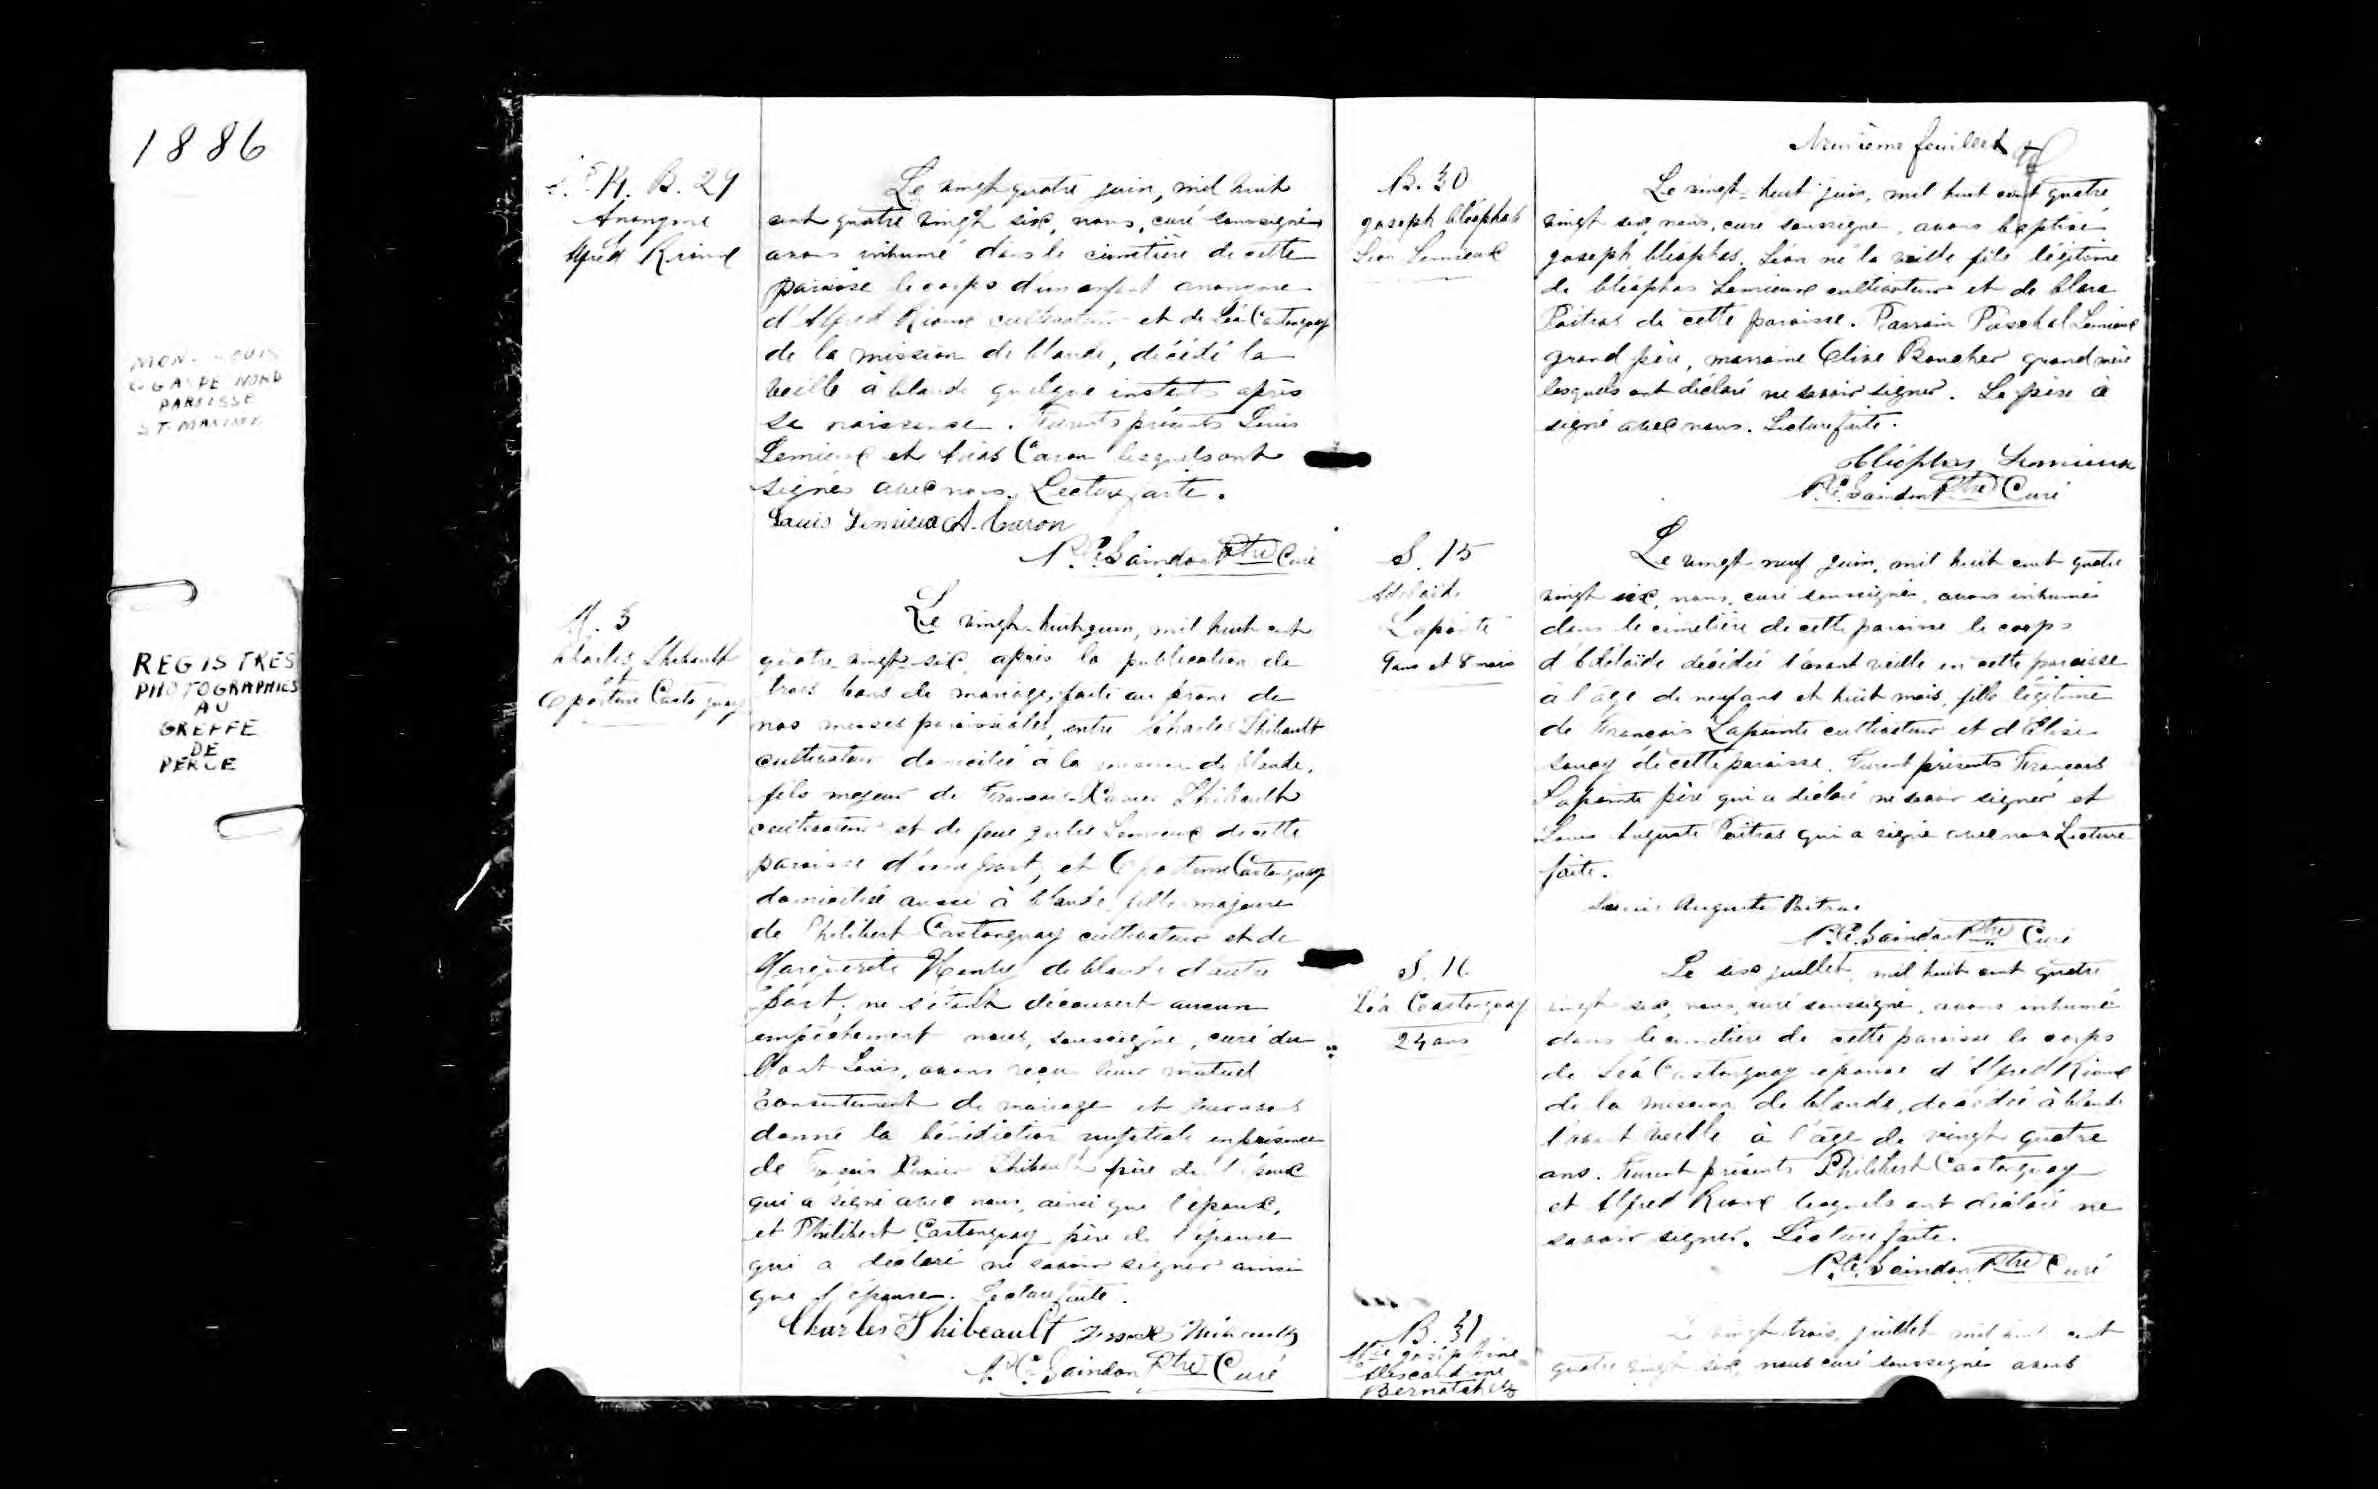 1886
MONT LOUIS
C. GASPE NORD
PAROISSE
ST. MAXIME
REGISTRES
PHOTOGRAPHIES
AU
GREFFE
DE
PERCE
S. 14. B. 29
Anonyme
Alfred Rioux
Le vingt quatre juin, mil huit
cent quatre vingt six, nous, curé soussigné
avons inhumé dans le cimetière de cette
paroisse le corps d'un enfant anonyme
d'Alfred Rioux cultivateur et de Léa Castonguay
de la mission de Claude, décédé la
veille à Claude quelque instants après
sa naissance. Furent présents Louis
Lemieux et Caron lesquels ont
signés avec nous. Lecture faite.
Louis Lemieux A. Caron
P. C. Saindon Ptre Curé
M. 3
Charles Thibault
et
Castonguay
Le vingt-huit juin, mil huit cent
quatre vingt-six, après la publication de
trois bans de mariage, faite au prône de
nos messes paroissiales, entre Charles Thibault
cultivateur domicilié à la mission de Claude,
fils majeur de François-Xavier Thibault
cultivateur et de feue Julie Lemieux de cette
paroisse d'une part, et Castonguay
domiciliée aussi à Claude, fille majeure
de Philibert Castonguay cultivateur et de
Marguerite de Claude d'autre
part; ne s'étant découvert aucun
empêchement nous, soussigné, curé du
Mont Louis, avons reçu leur mutuel
consentement de mariage et leur avons
donné la bénédiction nuptiale en présence
de François Xavier Thibault père de l'époux
qui a signé avec nous, ainsi que l'époux,
et Philibert Castonguay père de l'épouse
qui a déclaré ne savoir signer ainsi
que l'épouse. Lecture faite.
Charles Thibeault
P. C. Saindon Ptre Curé
feuillet
B. 30
Joseph Cléophas
Léon Lemieux
Le vingt-huit juin, mil huit cent quatre
vingt six, nous, curé soussigné, avons baptisé
Joseph Cléophas, Léon né la veille fils légitime
de Cléophas Lemieux cultivateur et de Clara
Poitras de cette paroisse. Parrain Paschal Lemieux
grand père, marraine Elise Boucher grand mère
lesquels ont déclaré ne savoir signer. Le père a
signé avec nous. Lecture faite.
Cléophas Lemieux
P. C. Saindon Ptre Curé
S. 15
Adélaïde
Lapointe
9 ans et 8 mois
Le vingt neuf juin, mil huit cent quatre
vingt six, nous, curé soussigné, avons inhumé
dans le cimetière de cette paroisse le corps
d'Adélaïde décédée l'avant veille en cette paroisse
à l'âge de neuf ans et huit mois, fille légitime
de François Lapointe cultivateur et d'Elise
Soucy de cette paroisse. Furent présents François
Lapointe père qui a déclaré ne savoir signer et
Louis Auguste Poitras qui a signé avec nous Lecture
faite.
Louis Auguste Poitras
P. C. Saindon Ptre Curé
S. 16
Léa Castonguay
24 ans
Le six juillet, mil huit cent quatre
vingt six, nous, curé soussigné, avons inhumé
dans le cimetière de cette paroisse le corps
de Léa Castonguay épouse d'Alfred Rioux
de la mission de Claude, décédée à Claude
l'avant veille à l'âge de vingt quatre
ans. Furent présents Philibert Castonguay
et Alfred Rioux lesquels ont déclaré ne
savoir signer. Lecture faite.
P. C. Saindon Ptre Curé
B. 31
Mie Joséphine
Bernatchez
Le vingt trois, juillet mil huit cent
quatre vingt six, nous curé soussigné avons